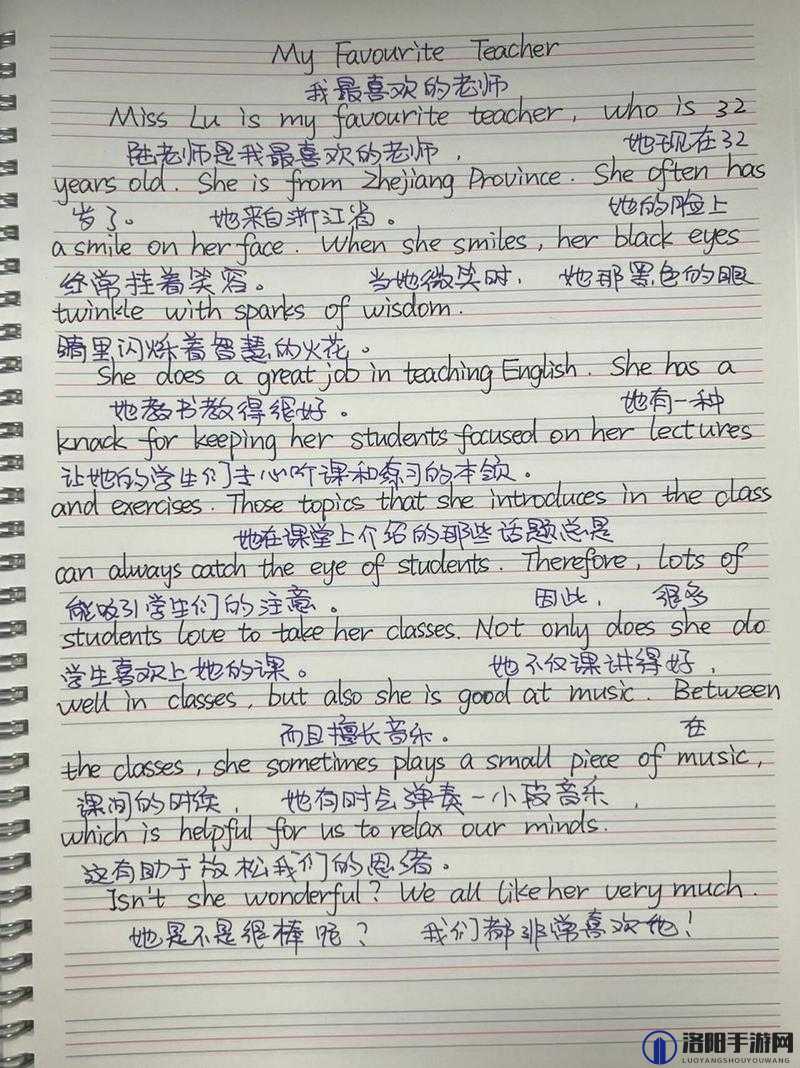 My Favourite Teacher
我最喜欢的老师
Miss Lu is my favourite teacher, who is 32
陆老师是我最喜欢的老师， 她现在32
years old. She is from Zhejiang Province. She often has
岁了。 她来自浙江省。 她的脸上
a smile on her face. When she smiles, her black eyes
经常挂着笑容。 当她微笑时， 她那黑色的眼
twinkle with sparks of wisdom.
睛里闪烁着智慧的火花。
She does a great job in teaching English. She has a
她教书教得很好。 她有一种
knack for keeping her students focused on her lectures
让她的学生们专心听课和练习的本领。
and exercises. Those topics that she introduces in the class
她在课堂上介绍的那些话题总是
can always catch the eye of students. Therefore, lots of
能吸引学生们的注意。 因此， 很多
students love to take her classes. Not only does she do
学生喜欢上她的课。 她不仅课讲得好，
well in classes, but also she is good at music. Between
而且擅长音乐。 在
the classes, she sometimes plays a small piece of music,
课间的时候， 她有时会弹奏一小段音乐，
which is helpful for us to relax our minds.
这有助于放松我们的思绪。
Isn't she wonderful? We all like her very much.
她是不是很棒呢？ 我们都非常喜欢她！
洛阳手游网
LUOYANGSHOUYOUWANG